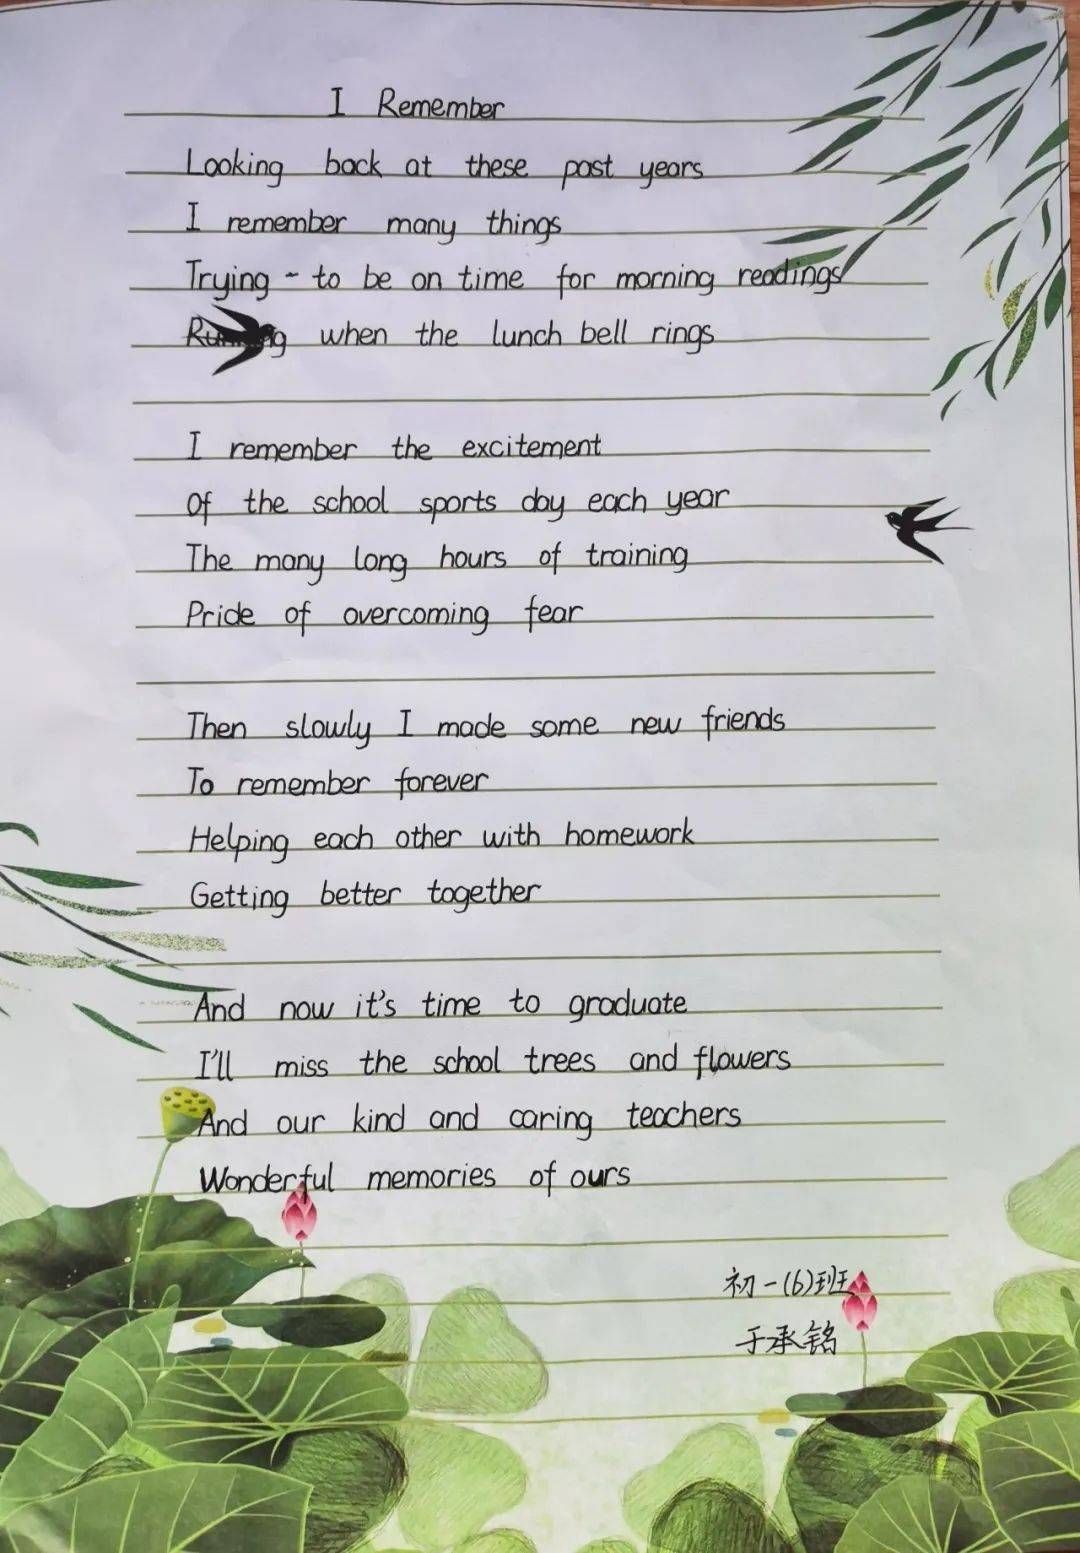 I Remember
Looking back at these past years
I remember many things
Trying - to be on time for morning readings
Running when the lunch bell rings
I remember the excitement
Of the school sports day each year
The many long hours of training
Pride of overcoming fear
Then slowly I made some new friends
To remember forever
Helping each other with homework
Getting better together
And now it's time to graduate
I'll miss the school trees and flowers
And our kind and caring teachers
Wonderful memories of ours
初一(6)班
于承铭